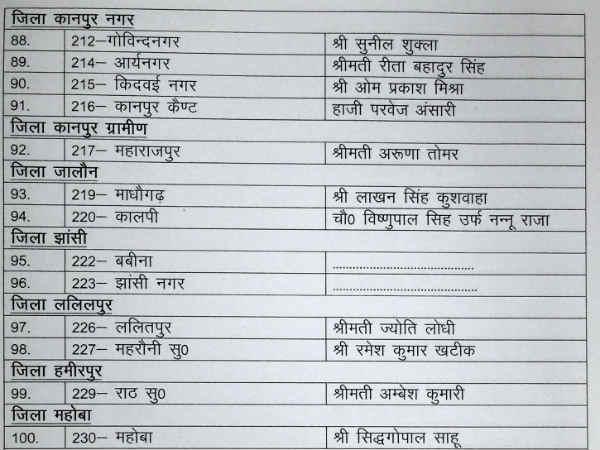 जिला कानपुर नगर
88. 212–गोविन्दनगर श्री सुनील शुक्ला
89. 214– आर्यनगर श्रीमती रीता बहादुर सिंह
90. 215– किदवई नगर श्री ओम प्रकाश मिश्रा
91. 216– कानपुर कैण्ट हाजी परवेज अंसारी
जिला कानपुर ग्रामीण
92. 217– महाराजपुर श्रीमती अरूणा तोमर
जिला जालौन
93. 219– माधौगढ़ श्री लाखन सिंह कुशवाहा
94. 220– कालपी चौ0 विष्णुपाल सिह उर्फ नन्नू राजा
जिला झांसी
95. 222– बबीना ..........................................
96. 223– झांसी नगर ..........................................
जिला ललिलपुर
97. 226– ललितपुर श्रीमती ज्योति लोधी
98. 227– महरौनी सु0 श्री रमेश कुमार खटीक
जिला हमीरपुर
99. 229– राठ सु0 श्रीमती अम्बेश कुमारी
जिला महोबा
100. 230– महोबा श्री सिद्धगोपाल साहू